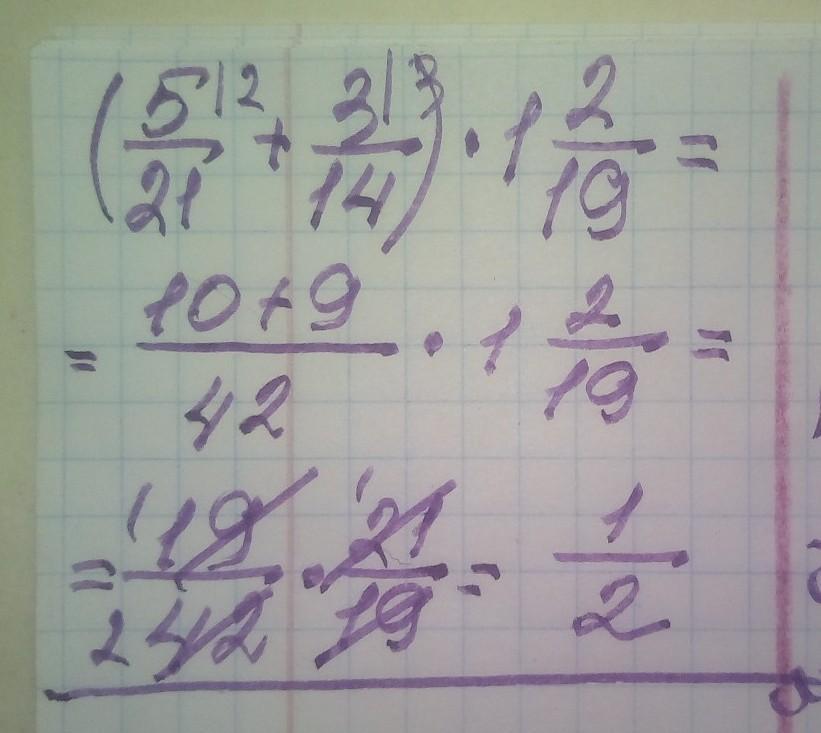 (5/21 |2 + 3/14 |3) · 1 2/19 =
= 10+9/42 · 1 2/19 =
= 1 19/2 42 · 1 21/19 = 1/2